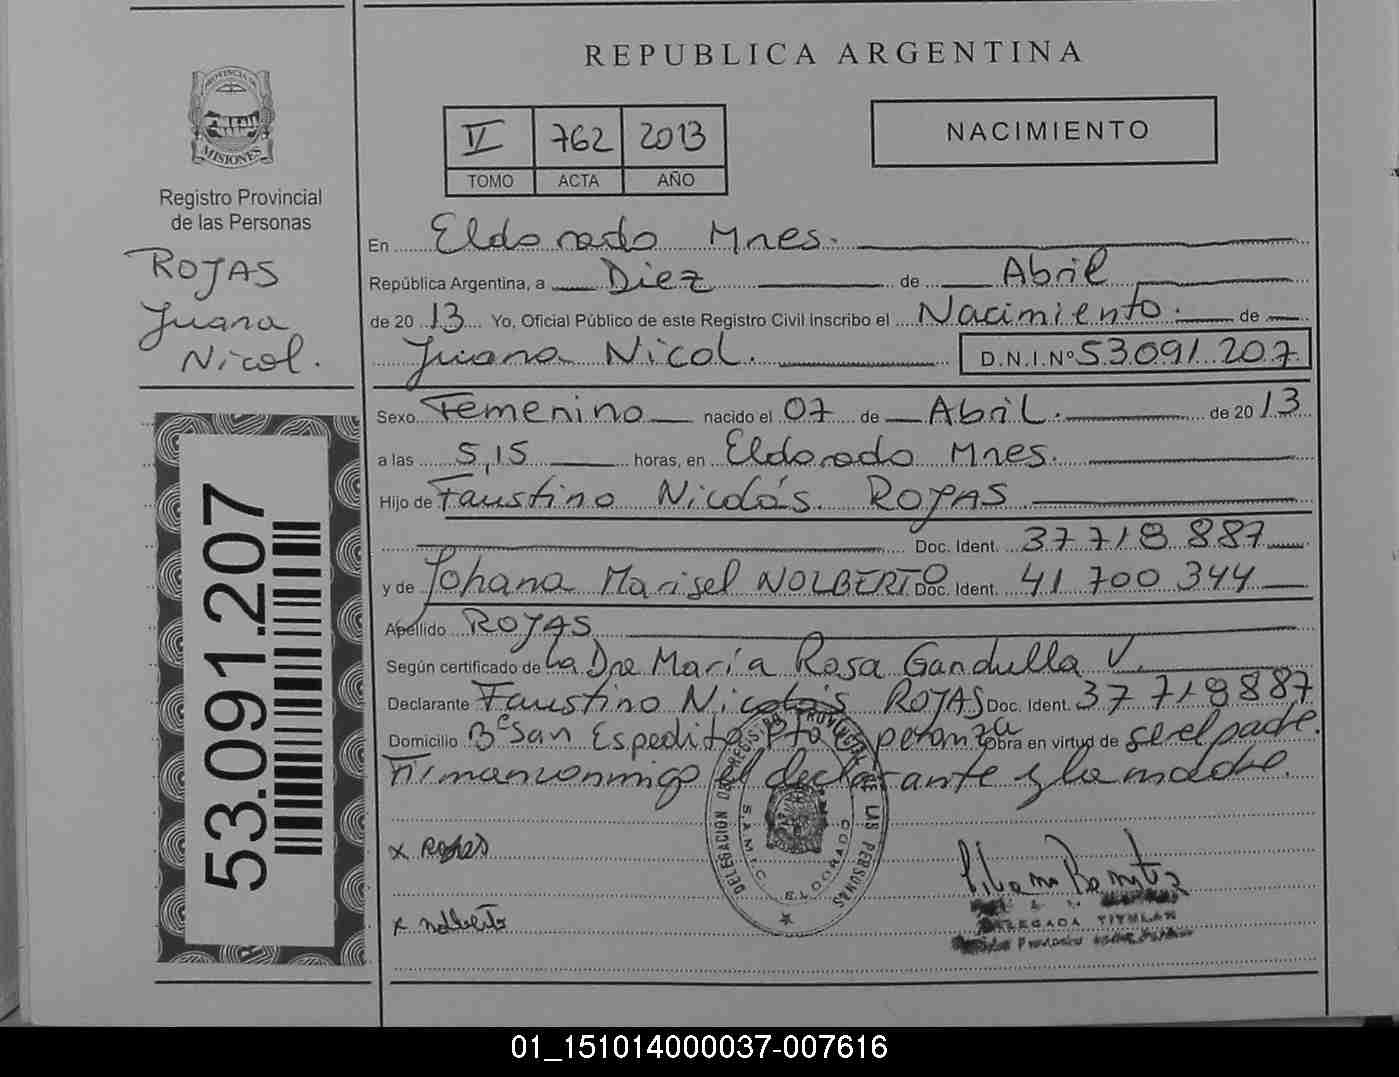 REPUBLICA ARGENTINA
PROVINCIA DE
MISIONES
Registro Provincial
de las Personas
ROJAS
Juana
Nicol.
53.091.207
VI 762 2013
TOMO ACTA AÑO
NACIMIENTO
En Eldorado Mnes.
República Argentina, a Diez de Abril
de 20 13 Yo, Oficial Público de este Registro Civil Inscribo el Nacimiento. de
Juana Nicol. D.N.I.Nº 53.091.207
Sexo Femenino nacido el 07 de Abril. de 20 13
a las 5,15 horas, en Eldorado Mnes.
Hijo de Faustino Nicolás ROJAS
Doc. Ident. 37 718 887
y de Johana Marisel NOLBERTO Doc. Ident. 41 700 344
Apellido ROJAS
Según certificado de La Dra María Rosa Gandulla V.
Declarante Faustino Nicolás ROJAS Doc. Ident. 37 718 887
Domicilio Bº San Espedito Pto Esperanza Obra en virtud de ser el padre.
Firman conmigo el declarante y la madre.
DELEGACION DEL REGIST. PROVINCIAL DE LAS PERSONAS
S.A.M.I.C. ELDORADO
x Rojas
x Nolberto
DELEGADA TITULAR
01_151014000037-007616